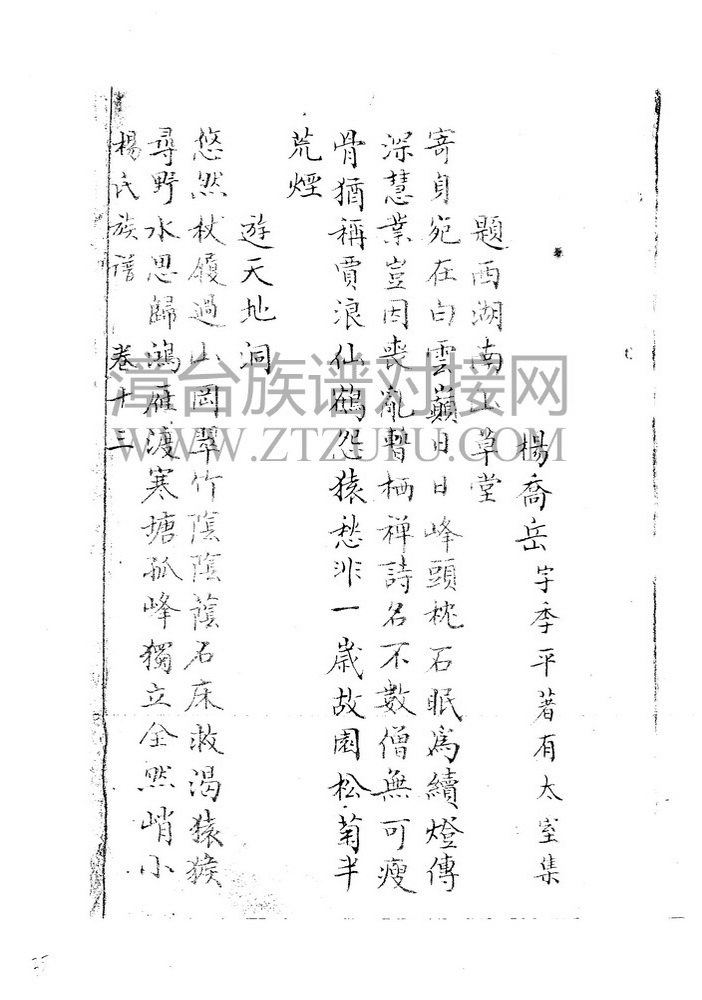 楊喬岳字季平著有太室集
題西湖南山草堂
寄身宛在白雲巔日日峰頭枕石眠為續燈傳
深慧業豈因喪亂暫栖禪詩名不數僧無可瘦
骨猶稱賈浪仙鶴怨猿愁非一歲故園松菊半
荒煙
遊天地洞
悠然杖履過山岡翠竹陰陰蔭石床救渴猿猴
尋野水思歸鴻雁渡寒塘孤峰獨立全然峭小
楊氏族譜 卷十三
漳台族谱对接网
WWW.ZTZUPU.COM